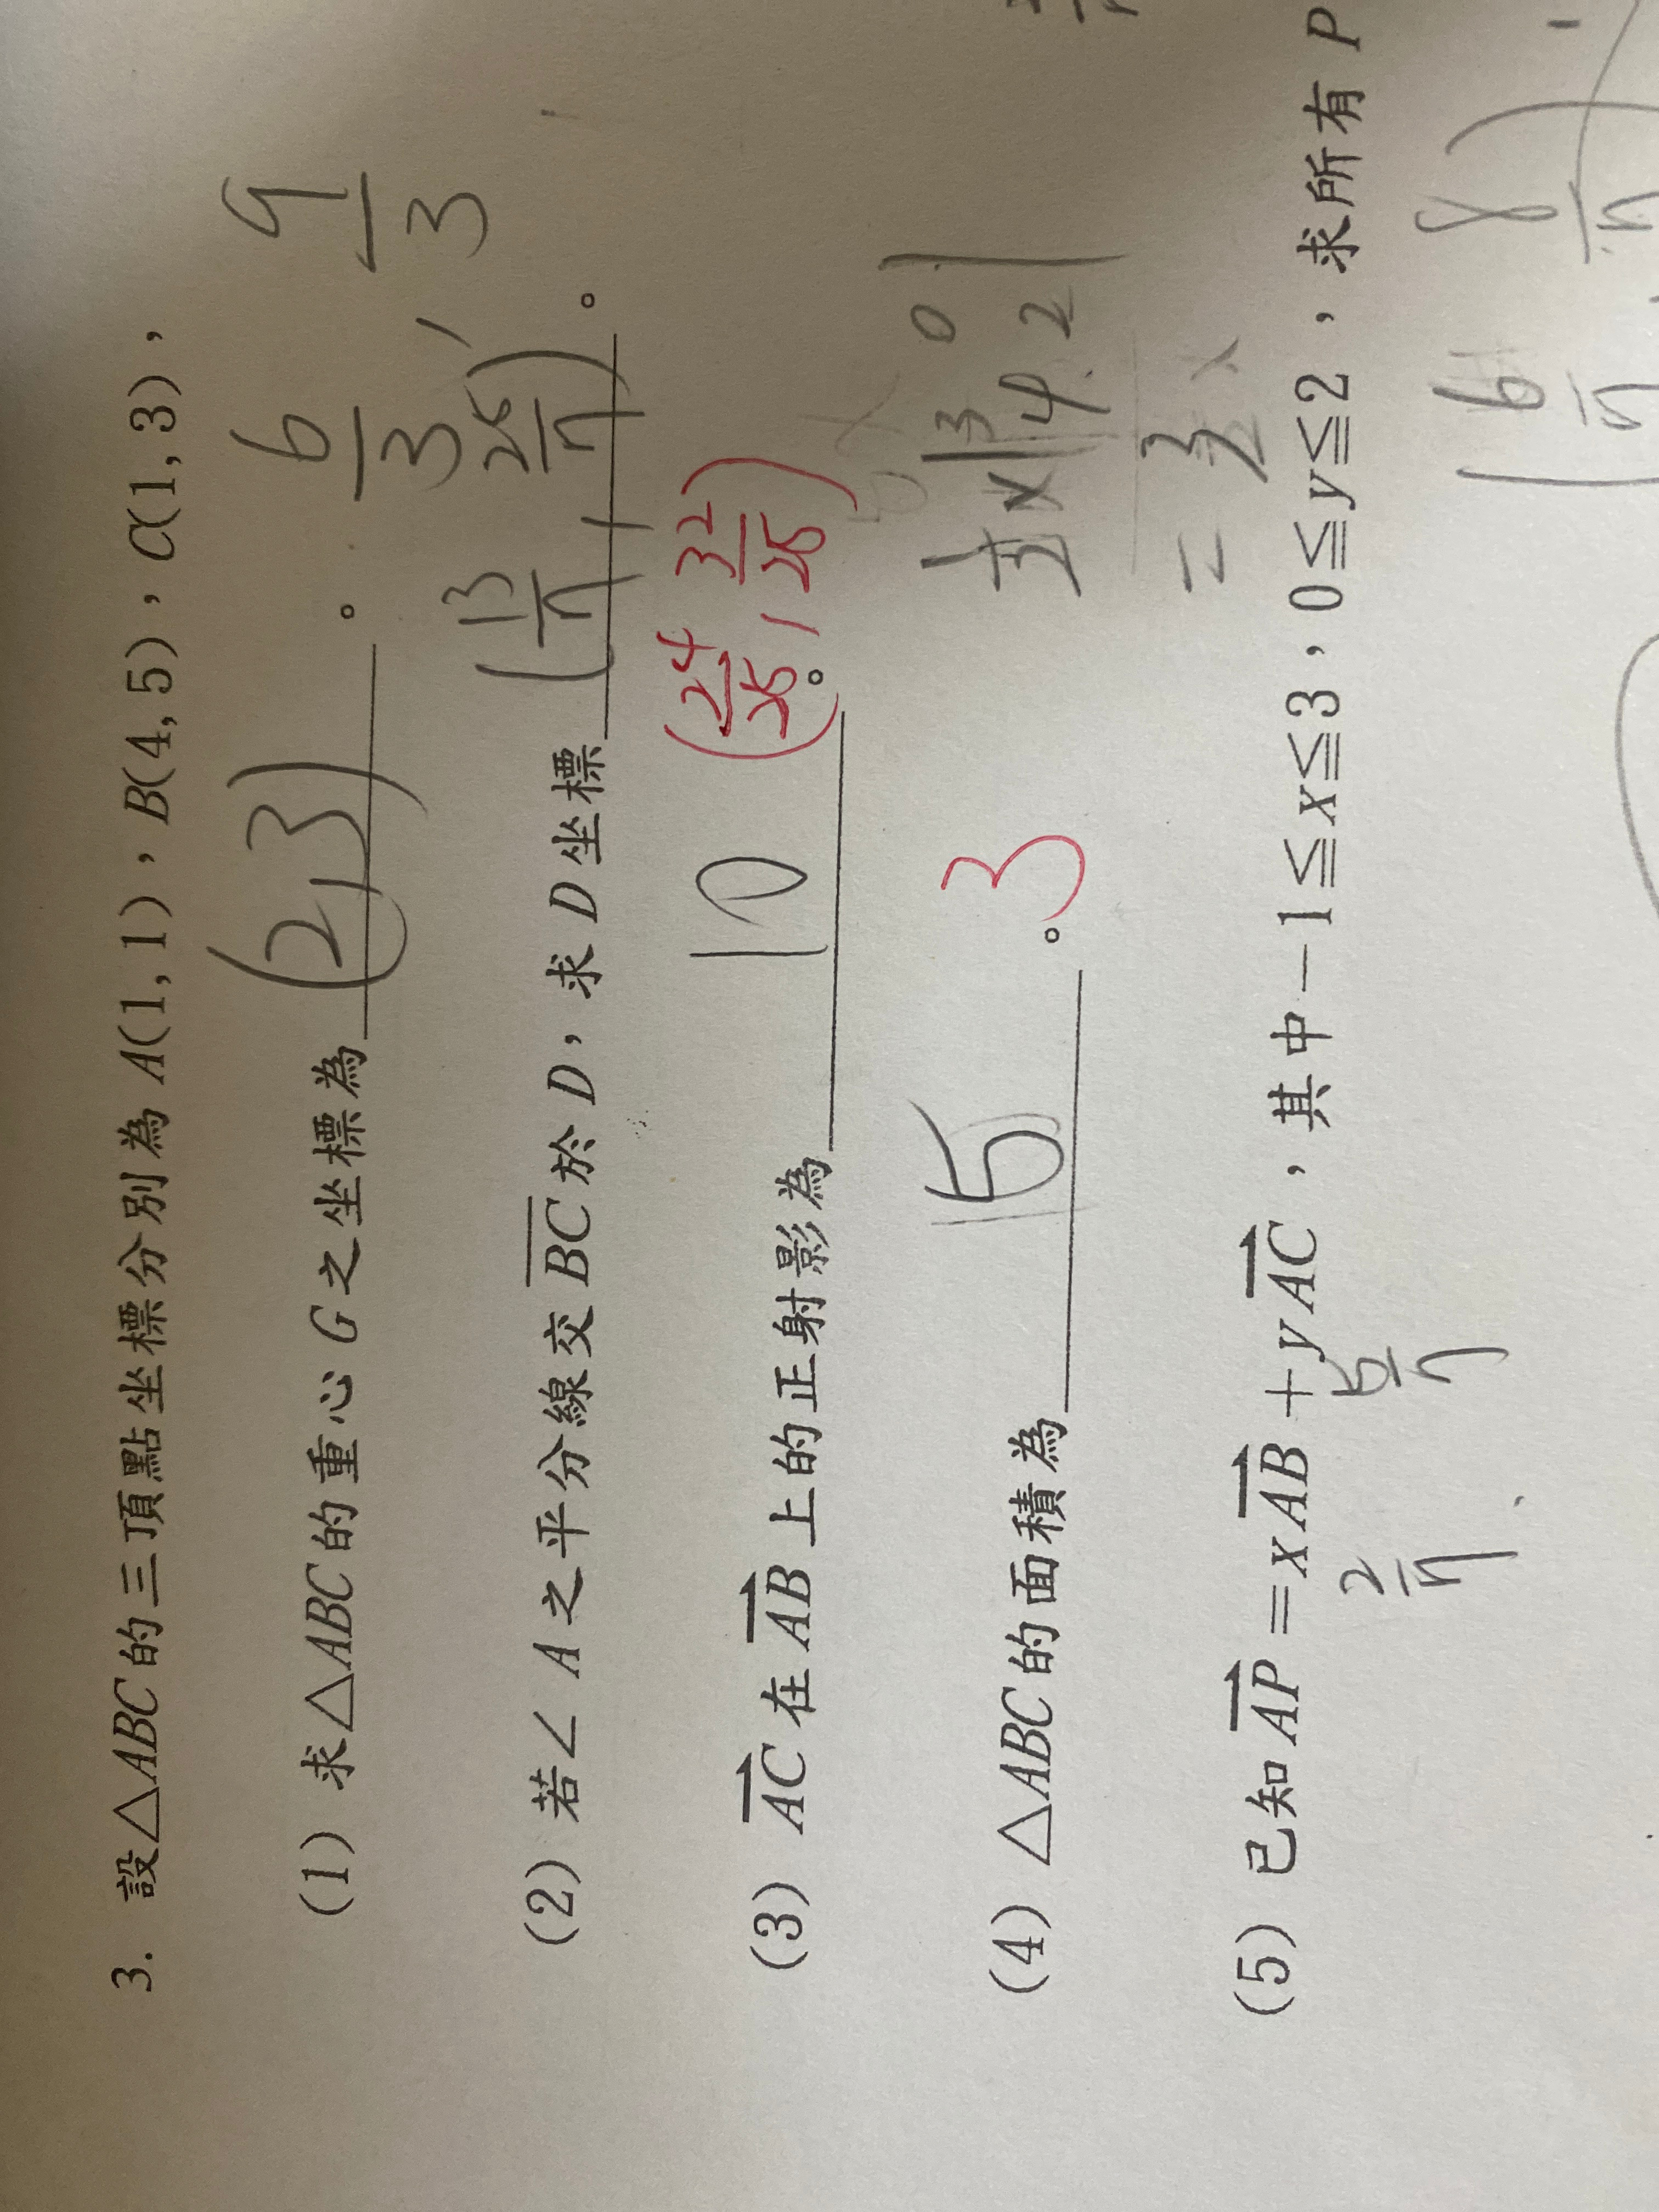 3. 設△ABC的三頂點坐標分別為 A(1,1),B(4,5),C(1,3),
(1) 求△ABC的重心 G 之坐標為 (2,3) 。 6/3 , 9/3
(2) 若∠A之平分線交BC於 D,求 D 坐標 (13/7 , 25/7) 。
(3) AC 在 AB 上的正射影為 10 。 (24/25 , 32/25)
(4) △ABC的面積為 5 。 3
1/2 × | 3 0 4 2 |
= 3
(5) 已知 AP = xAB + yAC ,其中 −1≦x≦3,0≦y≦2,求所有 P
2/7 5/7